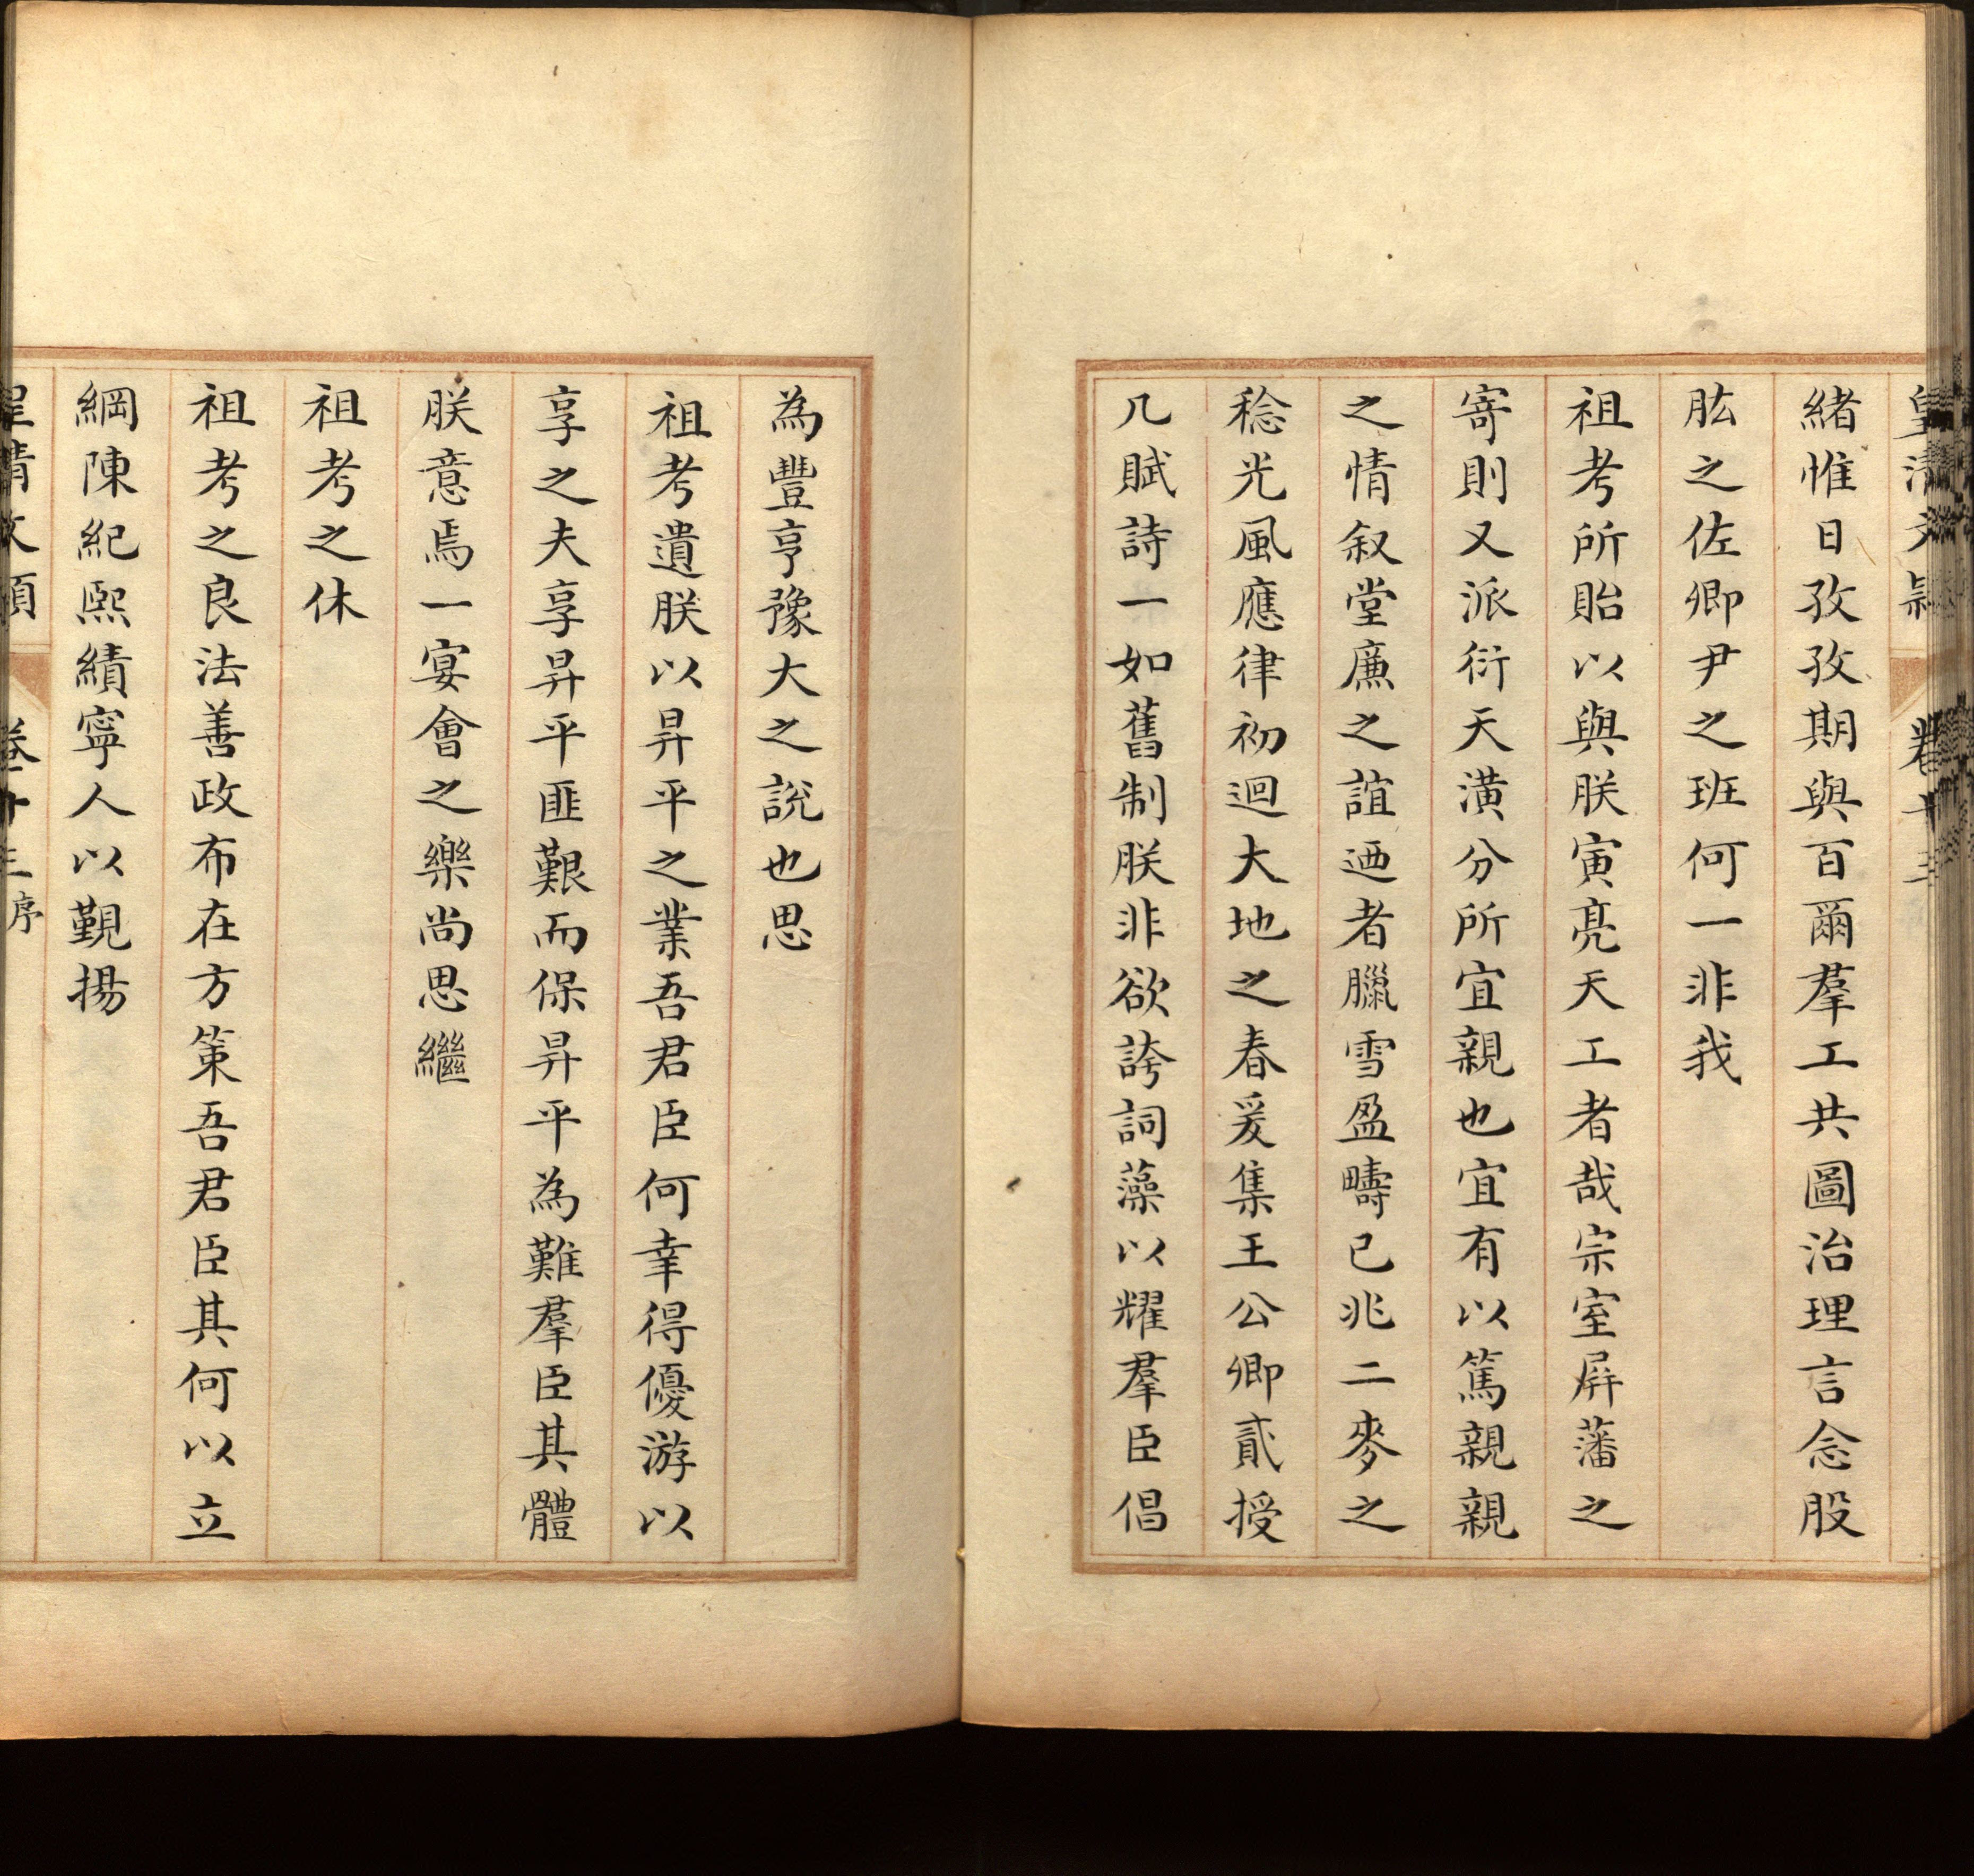 皇清文穎 卷十三
緒惟日孜孜期與百爾羣工共圖治理言念股
肱之佐卿尹之班何一非我
祖考所貽以與朕寅亮天工者哉宗室屏藩之
寄則又派衍天潢分所宜親也宜有以篤親親
之情叙堂廉之誼迺者臘雪盈疇已兆二麥之
稔光風應律初迴大地之春爰集王公卿貳授
几賦詩一如舊制朕非欲誇詞藻以耀羣臣倡
為豐亨豫大之說也思
祖考遺朕以昇平之業吾君臣何幸得優游以
享之夫享昇平匪艱而保昇平為難羣臣其體
朕意焉一宴會之樂尚思繼
祖考之休
祖考之良法善政布在方策吾君臣其何以立
綱陳紀熙績寧人以覲揚
皇清文穎 卷十三 序